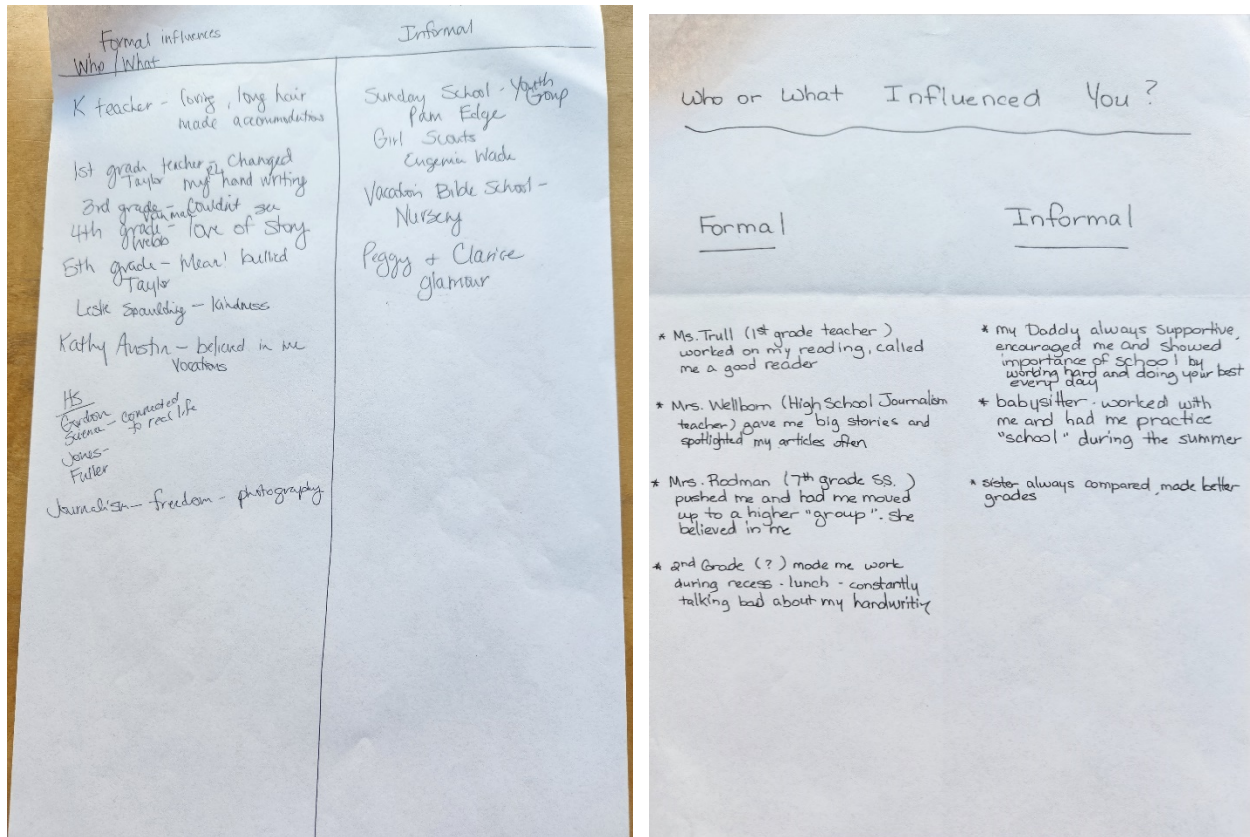 Formal influences
Who / What
K teacher - loving, long hair
made accommodations
1st grade teacher - changed
Taylor my hand writing
3rd grade - couldn't see
4th grade - love of story
Webb
5th grade - Mean! bullied
Taylor
Leslie Spaulding - kindness
Kathy Austin - believed in me
Vocations
HS
Gordon
Science - connected
to real life
Jones -
Fuller
Journalism - freedom - photography
Informal
Sunday School - Youth
Group
Pam Edge
Girl Scouts
Eugenia Wade
Vacation Bible School -
Nursery
Peggy + Clarice
glamour
Who or What Influenced You?
Formal
* Ms. Trull (1st grade teacher)
worked on my reading, called
me a good reader
* Mrs. Wellborn (High School Journalism
teacher) gave me big stories and
spotlighted my articles often
* Mrs. Rodman (7th grade SS.)
pushed me and had me moved
up to a higher "group". she
believed in me
* 2nd Grade (?) made me work
during recess - lunch - constantly
talking bad about my handwriting
Informal
* my Daddy always supportive,
encouraged me and showed
importance of school by
working hard and doing your best
every day
* babysitter - worked with
me and had me practice
"school" during the summer
* sister always compared, made better
grades